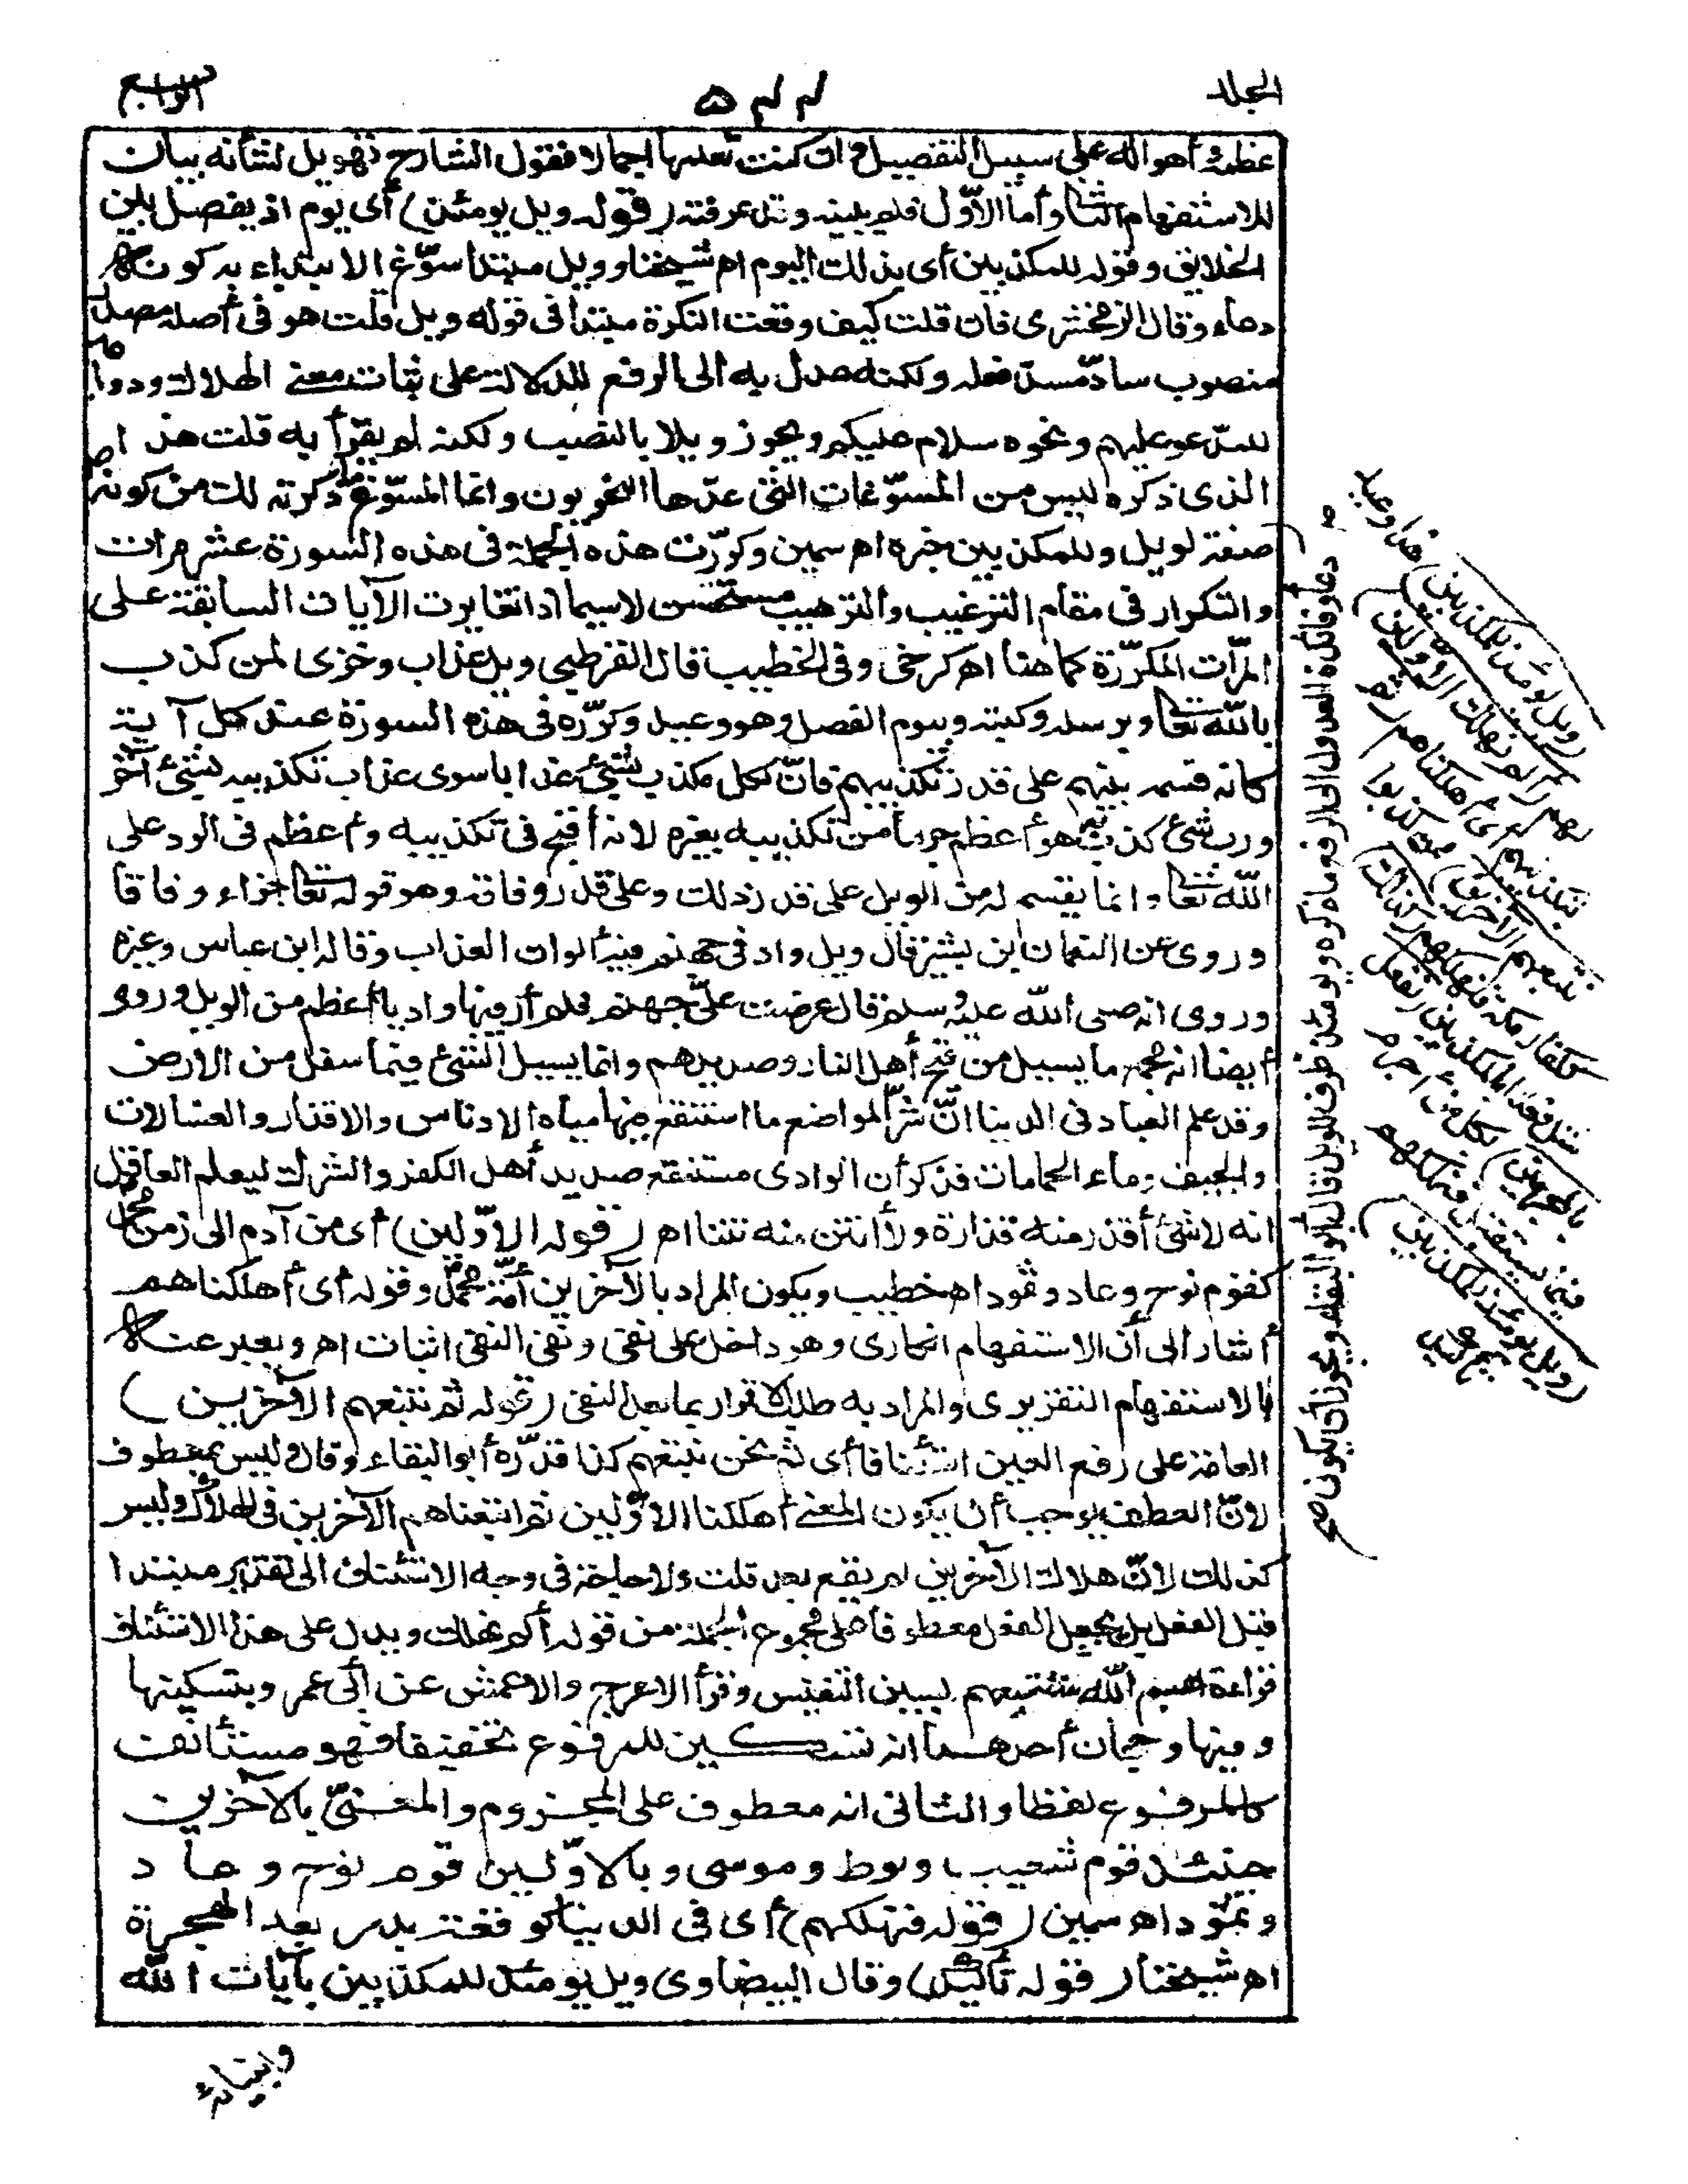 المجلد
الرابع
عظمه وأهواله على سبيل التفصيل وان كنت تعلمها اجمالا فقول الشارح تهويل لشأنه بيان
للاستفهام الثانى وأما الاوّل فلم يبينه وقد عرفته (قوله ويل يومئذ) أى يوم اذ يفصل بين
الخلائق وقوله للمكذبين أى بذلك اليوم اه شيخنا وويل مبتدأ سوّغ الابتداء به كونه
دعاء وقال الزمخشرى فان قلت كيف وقعت النكرة مبتدأ فى قوله ويل قلت هو فى أصله مصدر
منصوب سادّ مسدّ فعله ولكنه عدل به الى الرفع للدلالة على ثبات معنى الهلاك ودوامه
للمدّعو عليهم ونحوه سلام عليكم ويجوز ويلا بالنصب ولكنه لم يقرأ به قلت هذا
الذى ذكره ليس من المسوّغات التى عدّها النحويون وانما المسوّغ ما ذكرته لك من كونه
صفة لويل وللمكذبين خبره اه سمين وكرّرت هذه الجملة فى هذه السورة عشر مرات
والتكرار فى مقام الترغيب والترهيب مستحسن لاسيما اذا تغايرت الآيات السابقة على
المرّات المكرّرة كما هنا اه كرخى وفى الخطيب قال القرطبى ويل عذاب وخزى لمن كذب
بالله تعالى وبرسله وكتبه وبيوم الفصل وهو وعيد وكرّره فى هذه السورة عند كل آية
كانه قسمه بينهم على قدر تكذيبهم فانّ لكل مكذب بشئ عذابا سوى عذاب تكذيبه بشئ آخر
ورب شئ كذب به هو أعظم جرما من تكذيبه بغيره لانه أقبح فى تكذيبه وأعظم فى الرد على
الله تعالى وانما يقسم له من الويل على قدر ذلك وعلى قدر وفاقه وهو قوله تعالى جزاء وفاقا
وروى عن النعمان ابن بشير قال ويل واد فى جهنم فيه ألوان العذاب وقاله ابن عباس وغيره
وروى انه صلى الله عليه وسلم قال عرضت علىّ جهنم فلم أر فيها واديا أعظم من الويل وروى
أيضا انه مجمع ما يسيل من قيح أهل النار وصديدهم وانما يسيل الشئ فيما سفل من الارض
وقد علم العباد فى الدنيا انّ شرّ المواضع ما استنقع فيها مياه الادناس والاقذار والغسالات
والجيف وماء الحمامات فذكر أن الوادى مستنقع صديد أهل الكفر والشرك ليعلم العاقل
انه لا شئ أقذر منه قذارة ولا أنتن منه نتنا اه (قوله الاوّلين) أى من آدم الى زمن محمد
كقوم نوح وعاد وثمود اه خطيب ويكون المراد بالآخرين أمّة محمد وقوله أى أهلكناهم
أشار الى أن الاستفهام انكارى وهو داخل على نفى ونفى النفى اثبات اه ويعبر عنه
بالاستفهام التقريرى والمراد به طلب الاقرار بما بعد النفى (قوله ثم نتبعهم الآخرين)
العامة على رفع العين استئنافا أى ثم نحن نتبعهم كذا قدّره أبو البقاء وقال وليس بمعطوف
لانّ العطف يوجب أن يكون المعنى أهلكنا الاوّلين ثم اتبعناهم الآخرين فى الهلاك وليس
كذلك لانّ هلاك الآخرين لم يقع بعد قلت ولا حاجة فى وجه الاستئناف الى تقدير مبتدا
قبل الفعل بل يجعل الفعل معطوفا على مجموع الجملة من قوله ألم نهلك ويدل على هذا الاستئناف
قراءة عبد الله ثم سنتبعهم بسين التنفيس وقرأ الاعرج والاعمش عن أبى عمر وبتسكينها
وفيها وجهان أحدهما انه تسكين للمرفوع تخفيفا فهو مستأنف
كالمرفوع لفظا والثانى انه معطوف على المجزوم والمعنىّ بالآخرين
حينئذ قوم شعيب ولوط وموسى وبالاوّلين قوم نوح وعاد
وثمود اه سمين (قوله فنهلكهم) أى فى الدنيا كوقعة بدر بعد الهجرة
اه شيخنا (قوله تأكيد) وقال البيضاوى ويل يومئذ للمكذبين بآيات الله
دعاء وفائدة العدول الى الرفع ما ذكره ويومئذ ظرف للويل قال أبو البقاء ويجوز أن يكون
هذا وعيد
(ويل يومئذ للمكذبين)
لهم (ألم نهلك الاولين)
بتكذيبهم أى أهلكناهم (ثم
نتبعهم الآخرين) ممن كذبوا
ككفار مكة فنهلكهم (كذلك)
مثل فعلنا بالمكذبين (نفعل
بالمجرمين) بكل من أجرم
فيما يستقبل فنهلكهم
(ويل يومئذ للمكذبين)